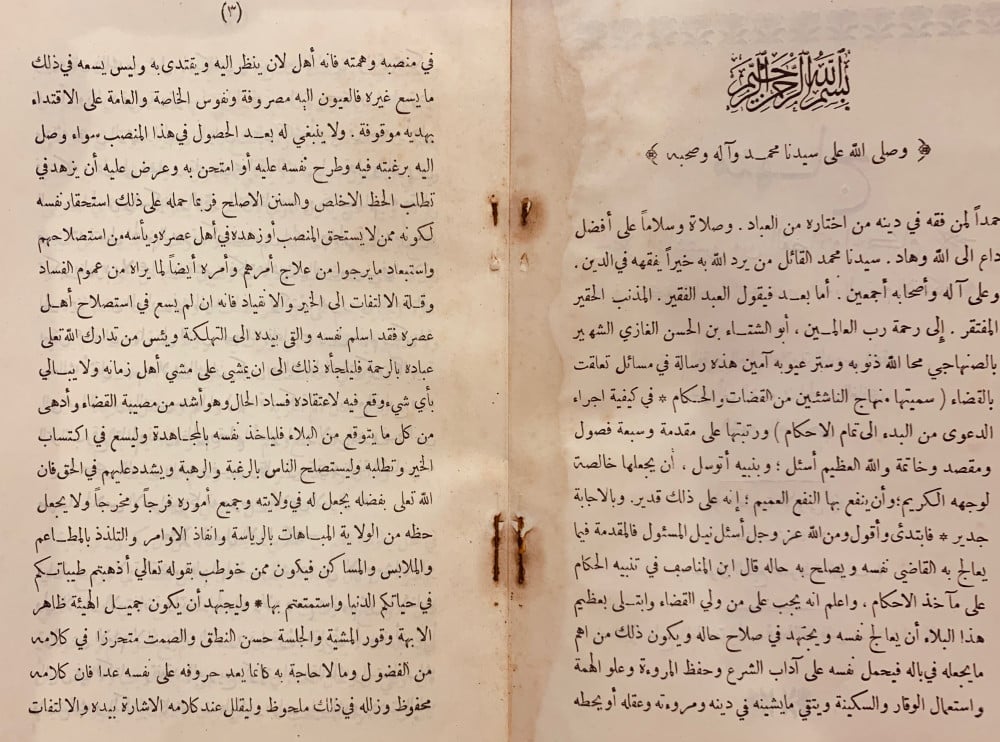 بسم الله الرحمن الرحيم
﴿ وصلى الله على سيدنا محمد وآله وصحبه ﴾
حمداً لمن فقه في دينه من اختاره من العباد . وصلاة وسلاماً على أفضل
داع الى الله وهاد . سيدنا محمد القائل من يرد الله به خيراً يفقهه في الدين .
وعلى آله وأصحابه أجمعين . أما بعد فيقول العبد الفقير . المذنب الحقير
المفتقر . إلى رحمة رب العالمين ، أبو الشتاء بن الحسن الغازي الشهير
بالصنهاجي محا الله ذنوبه وستر عيوبه آمين هذه رسالة في مسائل تعلقت
بالقضاء ( سميتها منهاج الناشئين من القضات والحكام * في كيفية اجراء
الدعوى من البدء الى تمام الاحكام ) ورتبتها على مقدمة وسبعة فصول
ومقصد وخاتمة والله العظيم أسئل ؛ وبنبيه أتوسل ، أن يجعلها خالصة
لوجهه الكريم؛ وأن ينفع بها النفع العميم ؛ إنه على ذلك قدير. وبالاجابة
جدير * فابتدىء وأقول ومن الله عز وجل أسئل نيل المسئول فالمقدمة فيما
يعالج به القاضي نفسه ويصلح به حاله قال ابن المناصف في تنبيه الحكام
على مآخذ الاحكام ، واعلم انه يجب على من ولي القضاء وابتلى بعظيم
هذا البلاء أن يعالج نفسه ويجتهد في صلاح حاله ويكون ذلك من اهم
مايجعله في باله فيحمل نفسه على آداب الشرع وحفظ المروءة وعلو الهمة
واستعمال الوقار والسكينة ويتقي مايشينه في دينه ومروءته وعقله أو يحطه
(٣)
في منصبه وهمته فانه أهل لان ينظر اليه ويقتدى به وليس يسعه في ذلك
ما يسع غيره فالعيون اليه مصروفة ونفوس الخاصة والعامة على الاقتداء
بهديه موقوفة . ولا ينبغي له بعد الحصول في هذا المنصب سواء وصل
اليه برغبته فيه وطرح نفسه عليه أو امتحن به وعرض عليه أن يزهد في
تطلب الحظ الاخلص والسنن الاصلح فربما حمله على ذلك استحقار نفسه
لكونه ممن لا يستحق المنصب أو زهده في أهل عصره ويأسه من استصلاحهم
واستبعاد مايرجوا من علاج أمرهم وأمره أيضاً لما يراه من عموم الفساد
وقلة الالتفات الى الخير والانقياد فانه ان لم يسع في استصلاح أهل
عصره فقد اسلم نفسه والقى بيده الى التهلكة ويئس من تدارك الله تعلى
عباده بالرحمة فليلجأه ذلك الى ان يمشي على مشي أهل زمانه ولا يبالي
بأي شيء وقع فيه لاعتقاده فساد الحال وهو أشد من مصيبة القضاء وأدهى
من كل ما يتوقع من البلاء فلياخذ نفسه بالمجاهدة وليسع في اكتساب
الخير وتطلبه وليستصلح الناس بالرغبة والرهبة ويشدد عليهم في الحق فان
الله تعلى بفضله يجعل له في ولايته وجميع أموره فرجاً ومخرجاً ولا يجعل
حظه من الولاية المباهات بالرياسة وانفاذ الاوامر والتلذذ بالمطاعم
والملابس والمساكن فيكون ممن خوطب بقوله تعالي أذهبتم طيباتكم
في حياتكم الدنيا واستمتعتم بها * وليجتهد أن يكون جميل الهيئة ظاهر
الابهة وقور المشية والجلسة حسن النطق والصمت متحرزا في كلامه
من الفضول وما لاحاجة به كانما يعد حروفه على نفسه عدا فان كلامه
محفوظ وزلله في ذلك ملحوظ وليقلل عند كلامه الاشارة بيده والالتفات